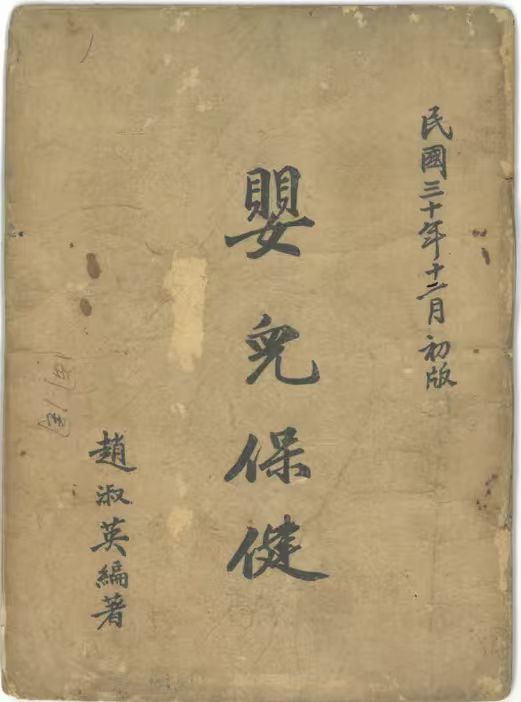 民國三十年十二月初版
嬰兒保健
趙淑英編著